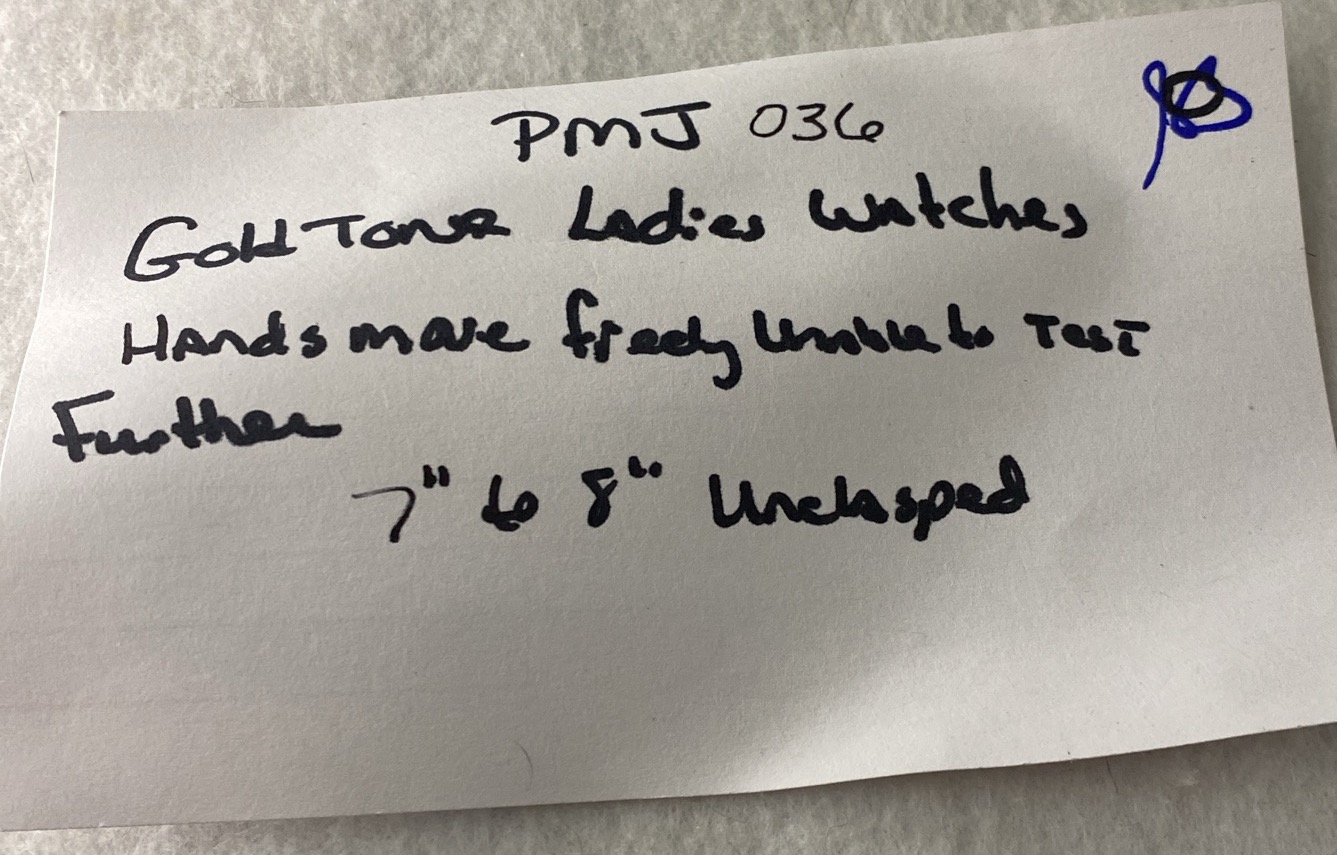 PMJ 036
Gold Tone Ladies Watches
Hands move freely Unable to Test
Further
7" to 8" Unclasped